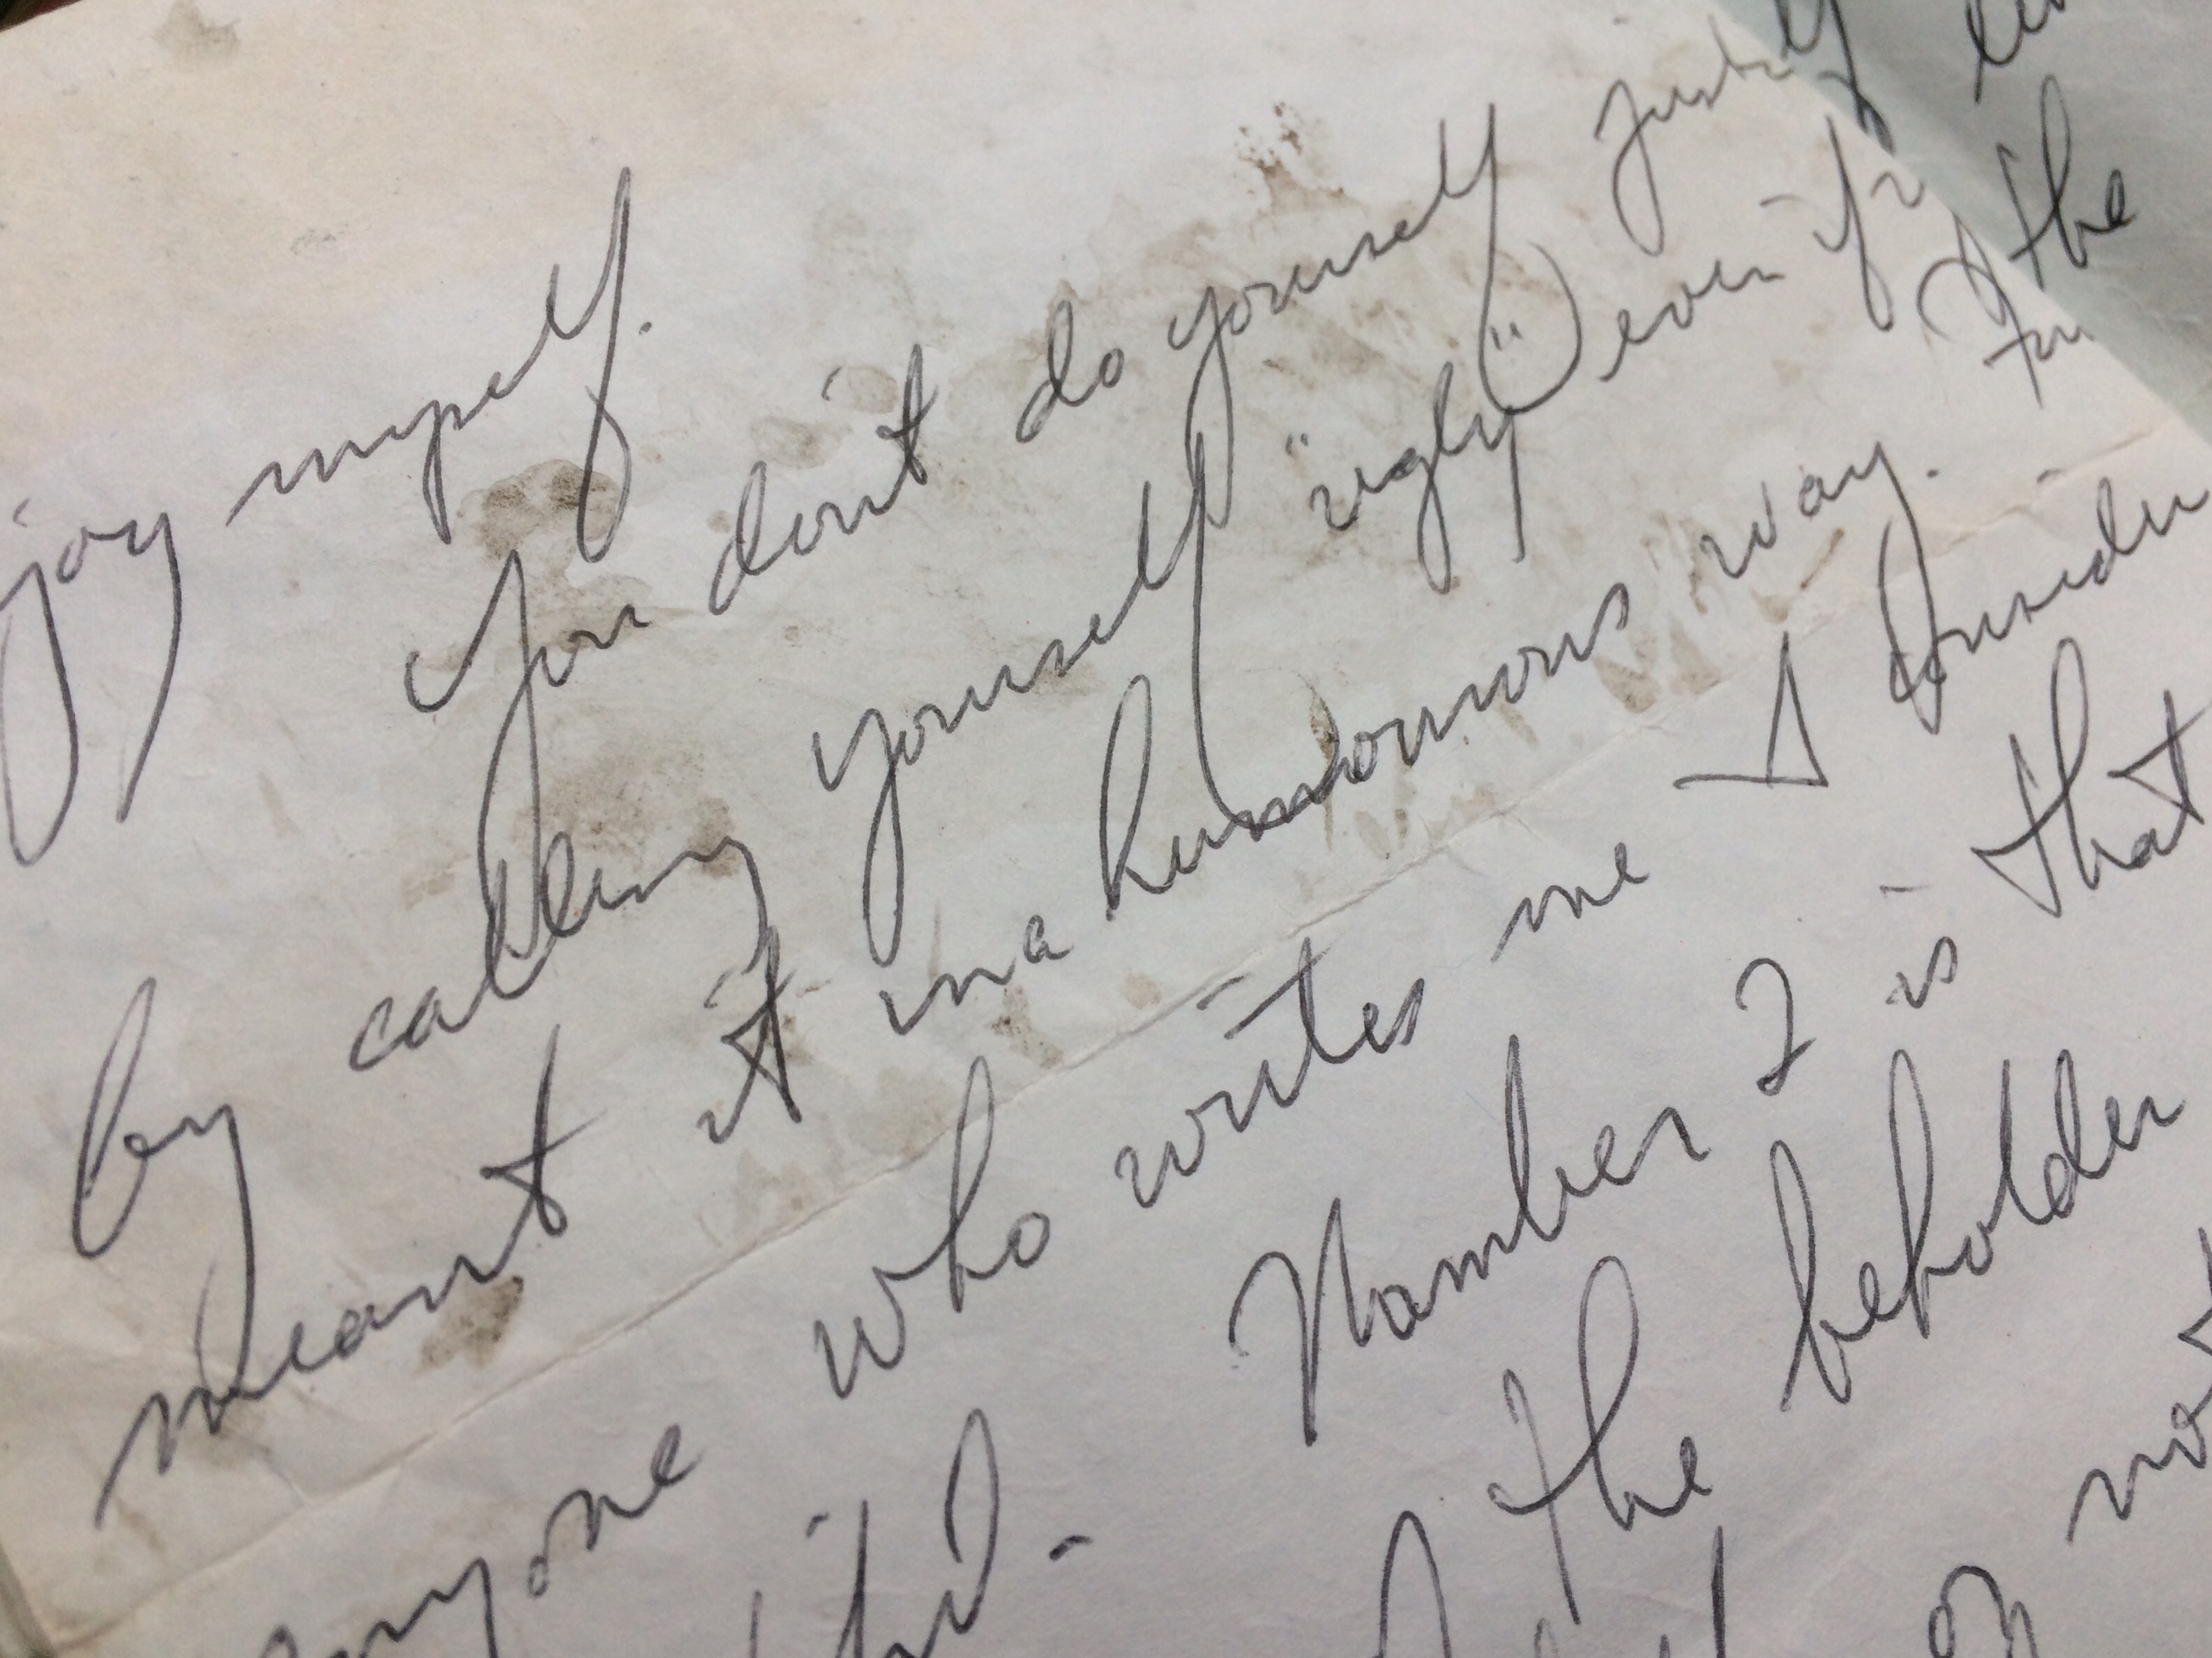 joy myself.
You don't do yourself justif
by calling yourself "ugly" even if
meant it in a humorous way. For the
anyone who writes me I consider
Number 2 is that
the beholder
or not